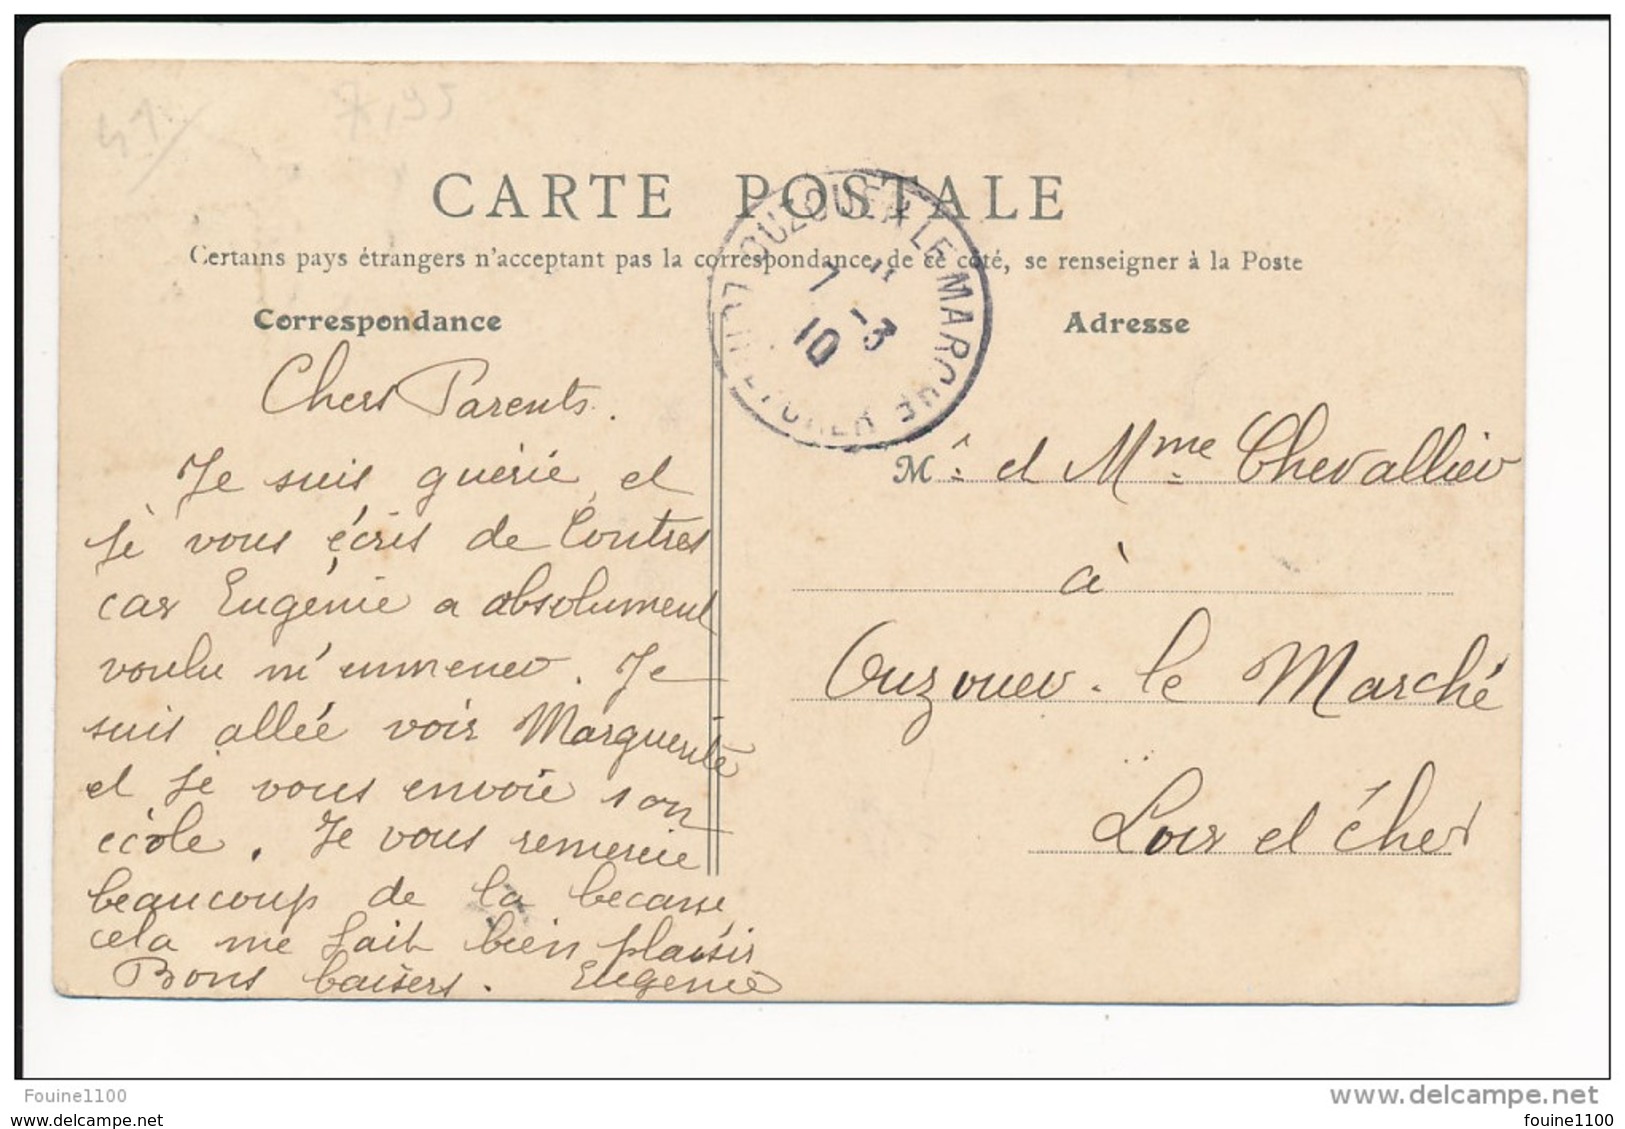 41
7,95
CARTE POSTALE
Certains pays étrangers n'acceptant pas la correspondance de ce côté, se renseigner à la Poste
Correspondance
Adresse
OUZOUER LE MARCHÉ
7 11
10 -3
LOIR-ET-CHER
Chers Parents.
Je suis guérie, et
je vous écris de Contres
car Eugénie a absolument
voulu m'emmener. Je
suis allée voir Marguerite
et je vous envoie son
école. Je vous remercie
beaucoup de la becasse,
cela me fait bien plaisir
Bons baisers. Eugénie
Mr et Mme Chevallier
à
Ouzouer-le Marché
Loir et Cher
Fouine1100
www.delcampe.net
fouine1100
fouine1100